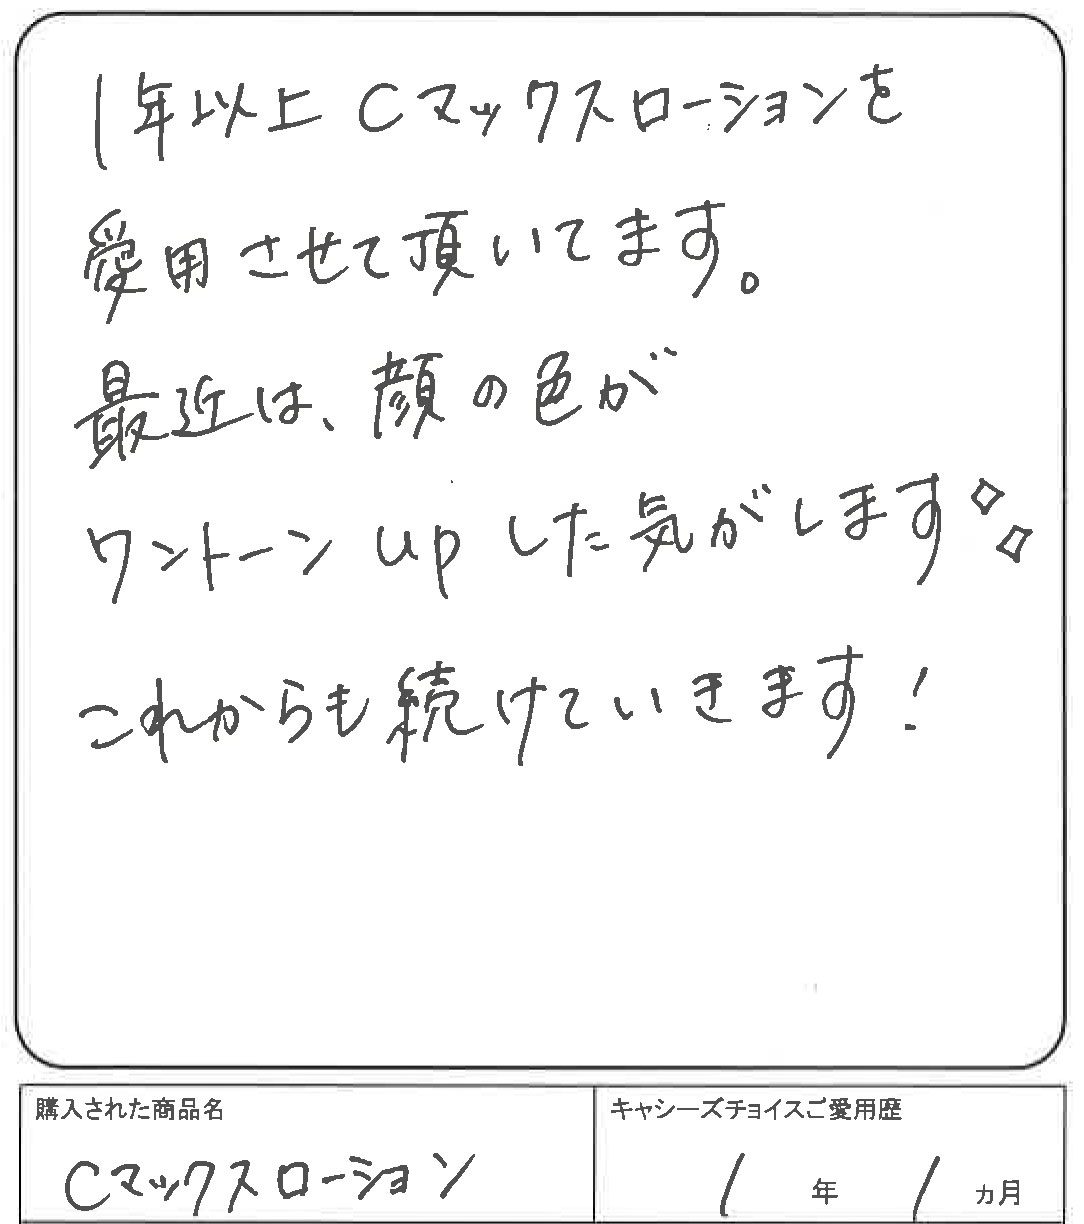 1年以上Cマックスローションを
愛用させて頂いてます。
最近は、顔の色が
ワントーンupした気がします
これからも続けていきます!
購入された商品名
Cマックスローション
キャシーズチョイスご愛用歴
1年 1ヵ月